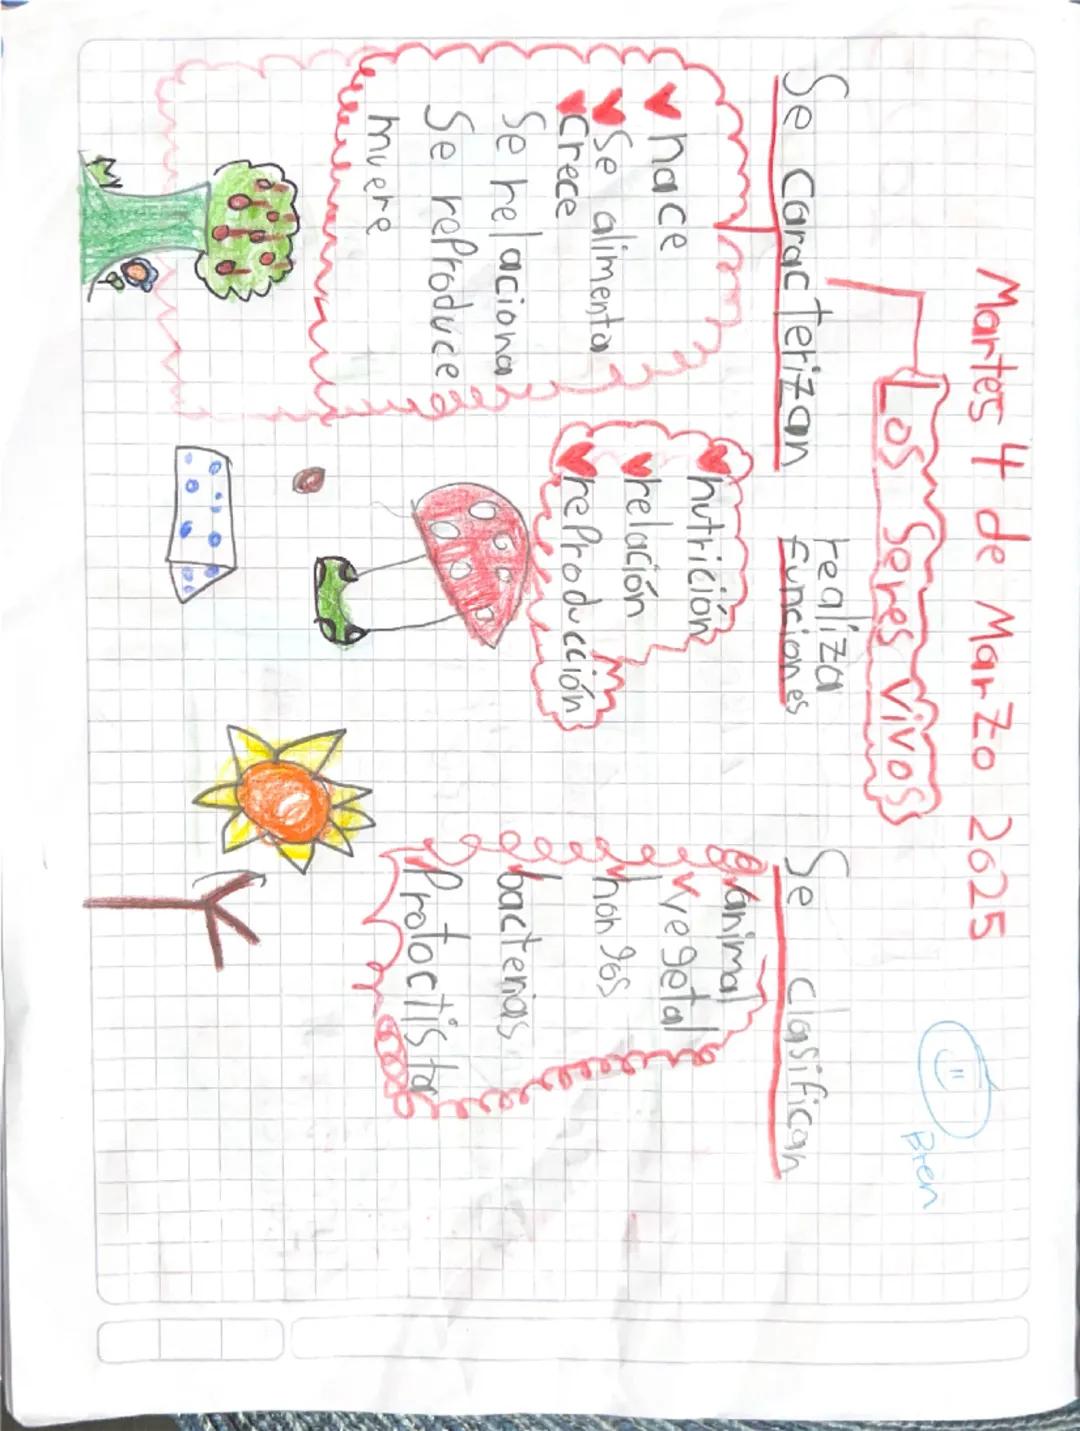 Martes 4 de Marzo 2025
Bien
Los Seres Vivos
Se Caracterizan
nace
Se alimenta
Crece
Se relaciona
Se reproduce
muere
realiza
funciones
nutrición
relación
reproducción
Se clasifican
animal
vegetal
hongos
bacterias
Protoctista